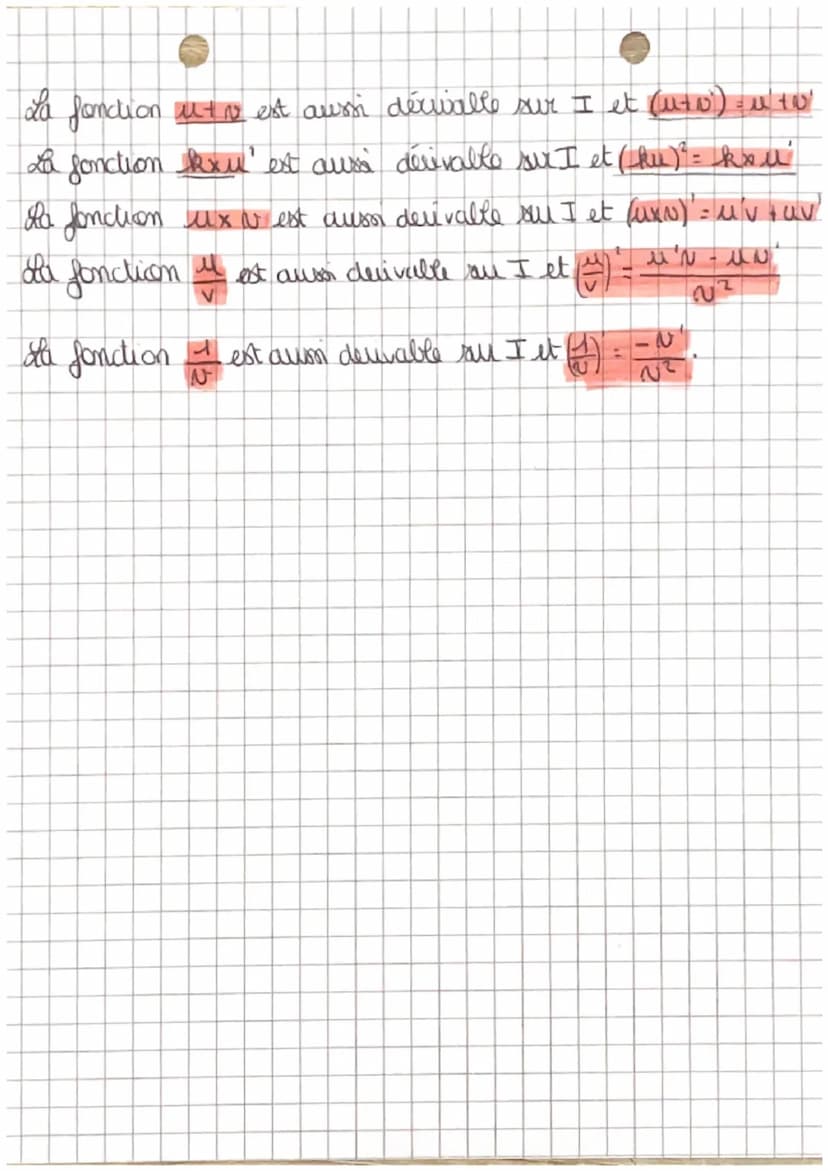 La fonction u+v est aussi dérivable sur I et (u+v)' = u'+v'
La fonction k×u' est aussi dérivable sur I et (ku)² = k×u'
La fonction u×v est aussi derivable su I et (u×v)' = u'v + uv'
La fonction u/v est aussi derivable su I et (u/v)' = u'v - uv'/v²
La fonction 1/v est aussi derivable su I et (1/v)' = -v'/v².